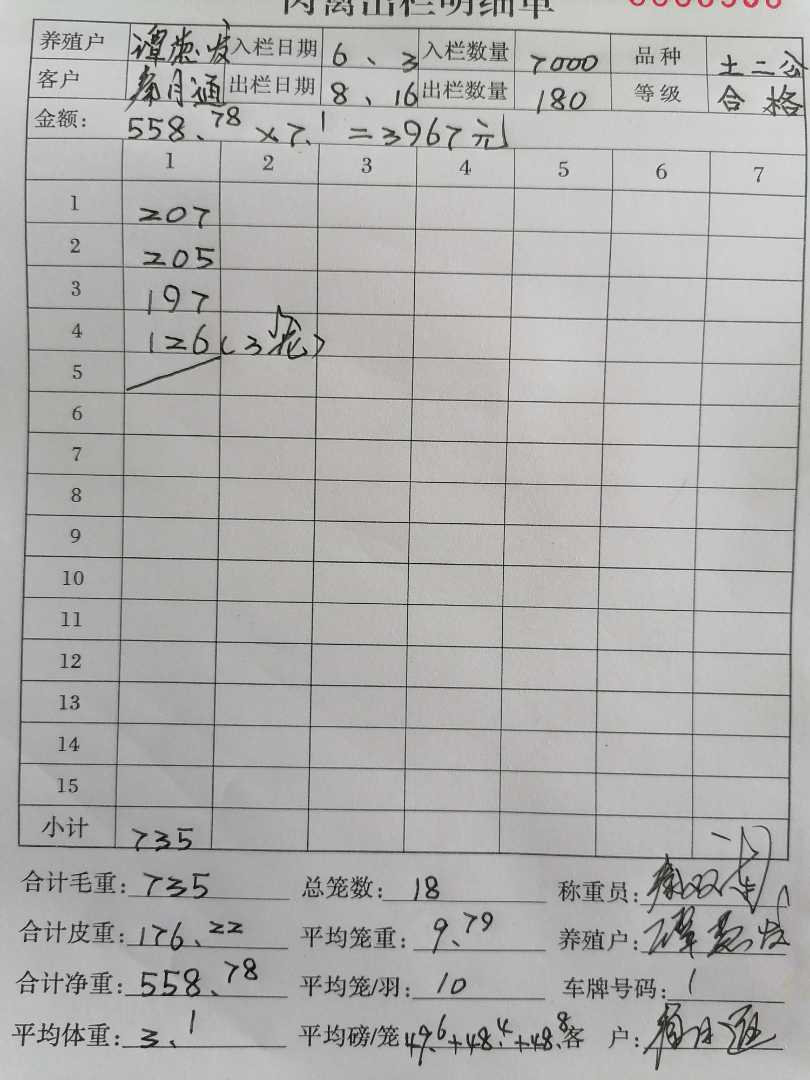 肉禽出栏明细单
养殖户 谭德发 入栏日期 6、3 入栏数量 7000 品种 土二公
客户 月通 出栏日期 8、16 出栏数量 180 等级 合格
金额: 558.78 × 7.1 = 3967元
1 2 3 4 5 6 7
1 207
2 205
3 197
4 126(3笼)
5
6
7
8
9
10
11
12
13
14
15
小计 735
合计毛重: 735 总笼数: 18 称重员:
合计皮重: 176.22 平均笼重: 9.79 养殖户: 谭德发
合计净重: 558.78 平均笼/羽: 10 车牌号码: 1
平均体重: 3.1 平均磅/笼 47.6+48.4+48.8 客 户: 月通